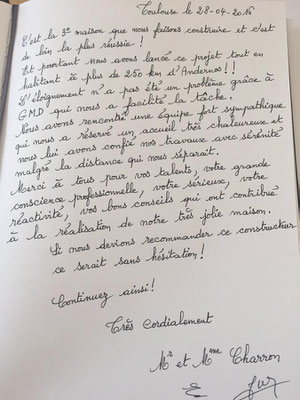 Toulouse le 28-04-2016
C'est la 3e maison que nous faisons construire et c'est
de loin la plus réussie !
Et pourtant nous avons lancé ce projet tout en
habitant à plus de 250 km d'Andernos !!!
L'éloignement n'a pas été un problème grâce à
GMD qui nous a facilité la tâche.
Nous avons rencontré une équipe fort sympathique
qui nous a réservé un accueil très chaleureux et
nous lui avons confié nos travaux avec sérénité
malgré la distance qui nous séparait.
Merci à tous pour vos talents, votre grande
conscience professionnelle, votre sérieux, votre
réactivité, vos bons conseils qui ont contribué
à la réalisation de notre très jolie maison.
Si nous devions recommander ce constructeur
ce serait sans hésitation !
Continuez ainsi !
Très cordialement
Mr et Mme Charron